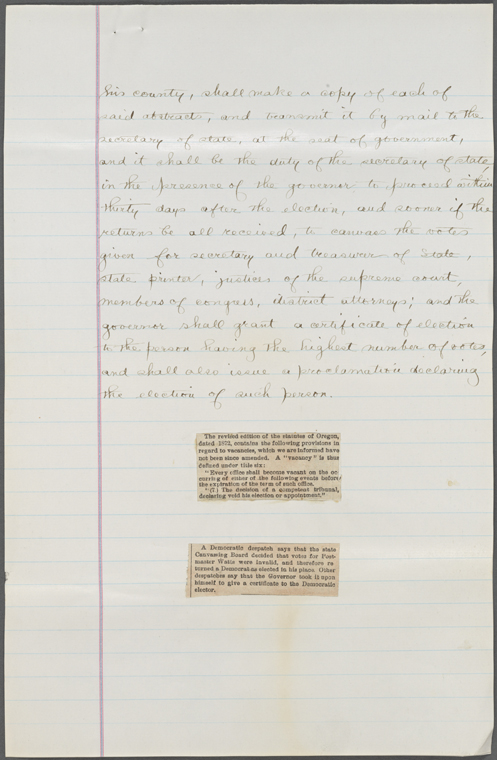 his county, shall make a copy of each of
said abstracts, and transmit it by mail to the
secretary of state, at the seat of government,
and it shall be the duty of the secretary of state,
in the presence of the governor to proceed within
thirty days after the election, and sooner if the
returns be all received, to canvass the votes
given for secretary and treasurer of State,
state printer, justices of the supreme court,
members of congress, district attorneys; and the
governor shall grant a certificate of election
to the person having the highest number of votes,
and shall also issue a proclamation declaring
the election of such person.
The revised edition of the statutes of Oregon,
dated 1872, contains the following provisions in
regard to vacancies, which we are informed have
not been since amended. A "vacancy" is thus
defined under title six:
"Every office shall become vacant on the oc
curring of either of the following events before
the expiration of the term of such office.
"(7) The decision of a competent tribunal,
declaring void his election or appointment."
A Democratic despatch says that the state
Canvassing Board decided that votes for Post-
master Watts were invalid, and therefore re
turned a Democrat as elected in his place. Other
despatches say that the Governor took it upon
himself to give a certificate to the Democratic
elector.